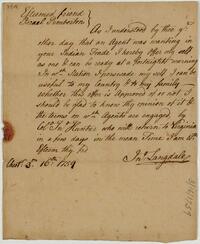 Esteemed friend
Israel Pemberton
As I understood by thee ye
other day that an Agent was wanting in
your Indian Trade I hereby offer my self
as one & can be ready at a fortnights warning
In wch Station I perswade my self I can be
usefull to my Country & to my family
whether this offer is Approved of or not I
should be glad to know thy opinion of it &
the terms on wch Agents are engaged by
Colo Jno Hunter who will return to Virginia
in a few days in the mean time I am wth
Esteem thy frd
Jno Langdale
16th 1759